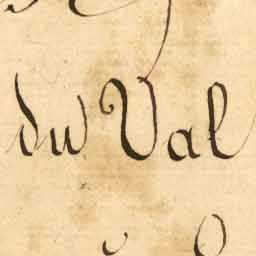 du Val